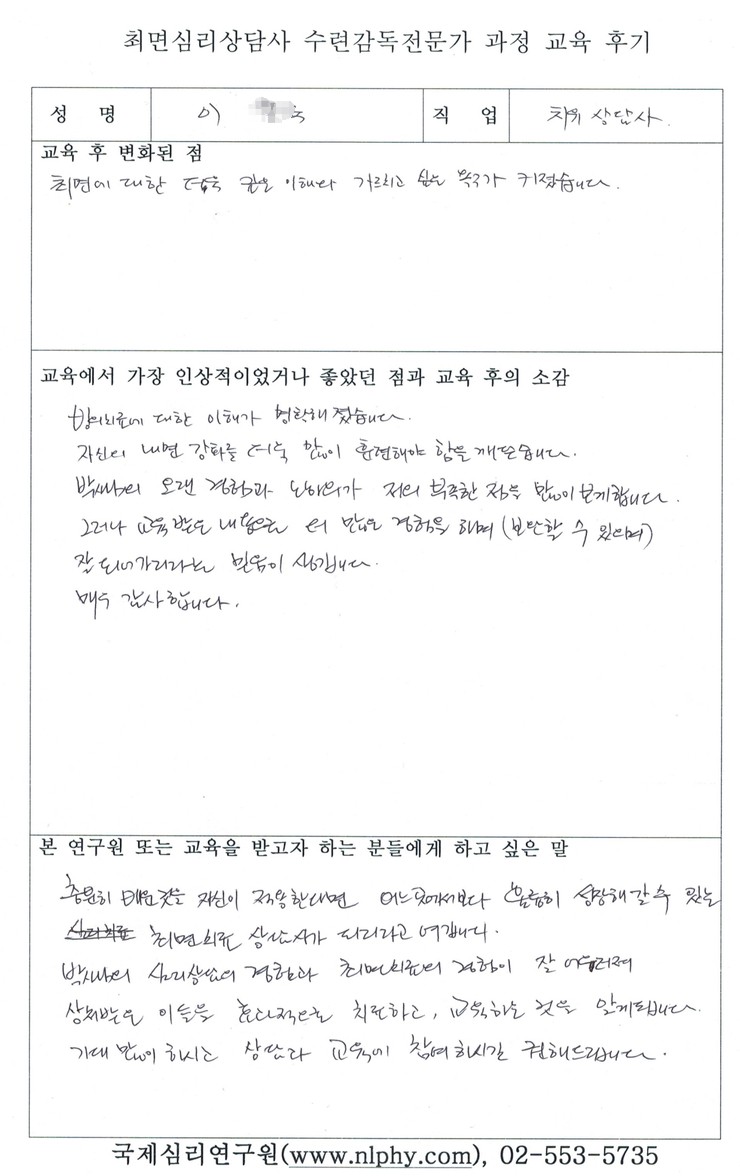 최면심리상담사 수련감독전문가 과정 교육 후기
성 명 이 직 업 치유 상담사.
교육 후 변화된 점
최면에 대한 더욱 깊은 이해와 가르치고 싶은 욕구가 커졌습니다.
교육에서 가장 인상적이었거나 좋았던 점과 교육 후의 소감
에 대한 이해가 명확해졌습니다.
자신의 내면 강화를 더욱 많이 훈련해야 함을 깨닫습니다.
박사님의 오랜 경험과 노하우가 저의 부족한 점을 많이 보게합니다.
그러나 교육받은 내용으로 더 많은 경험을 하며 (보탄할 수 있으며)
잘 되어가리라는 믿음이 생깁니다.
매우 감사합니다.
본 연구원 또는 교육을 받고자 하는 분들에게 하고 싶은 말
충분히 배운것을 자신이 적용한다면 어느곳에서보다 성장해갈 수 있는
심리치료 최면치료 상담사가 되리라고 여깁니다.
박사님의 심리상담의 경험과 최면치료의 경험이 잘 어우러져
상처받은 이들을 효과적으로 치료하고, 교육하는 것을 알게됩니다.
기대 많이 하시고 상담과 교육에 참여하시길 권해드립니다.
국제심리연구원(www.nlphy.com), 02-553-5735